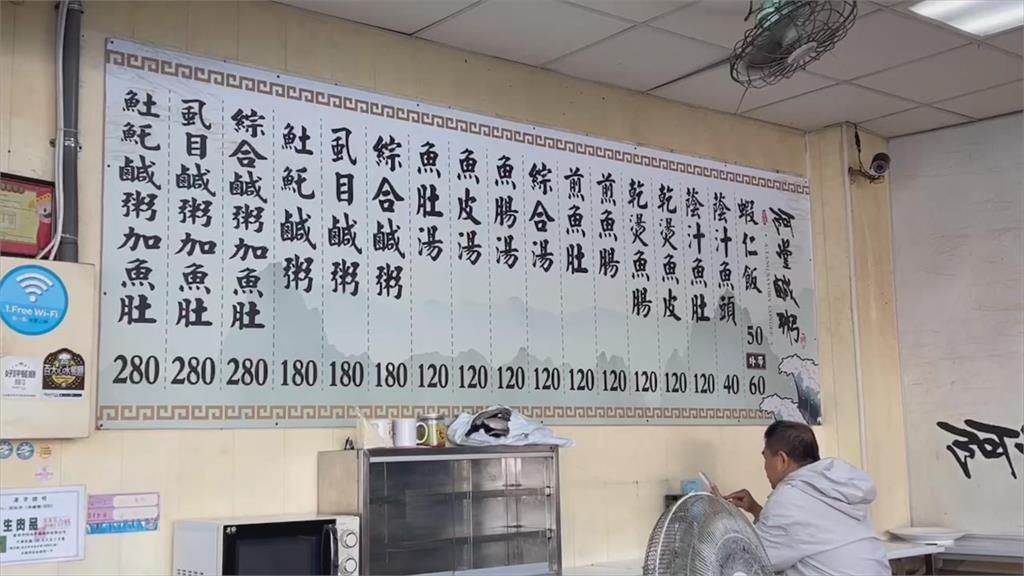 阿堂鹹粥
蝦仁飯 50 60
陰汁魚頭 40
陰汁魚肚 120
乾燙魚皮 120
乾燙魚腸 120
煎魚腸 120
煎魚肚 120
綜合湯 120
魚腸湯 120
魚皮湯 120
魚肚湯 120
綜合鹹粥 180
虱目鹹粥 180
𩵚魠鹹粥 180
綜合鹹粥加魚肚 280
虱目鹹粥加魚肚 280
𩵚魠鹹粥加魚肚 280
1.Free Wi-Fi
好評餐廳
百大心水餐廳
生肉品